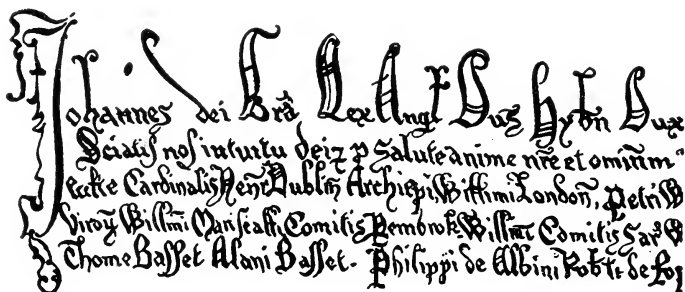 Johannes dei Grā Rex Angl Dns Hybn Dux
Sciatis nos intuitu dei ⁊ p salute anime nre et omnium
eccle Cardinalis Henr Dublin Archiepi, Willimi London, Petri W
viroꝝ Willmi Marscall, Comitis Pembrok, Willmi Comitis Sar W
Thome Basset Alani Basset. Philippi de Albini Robti de